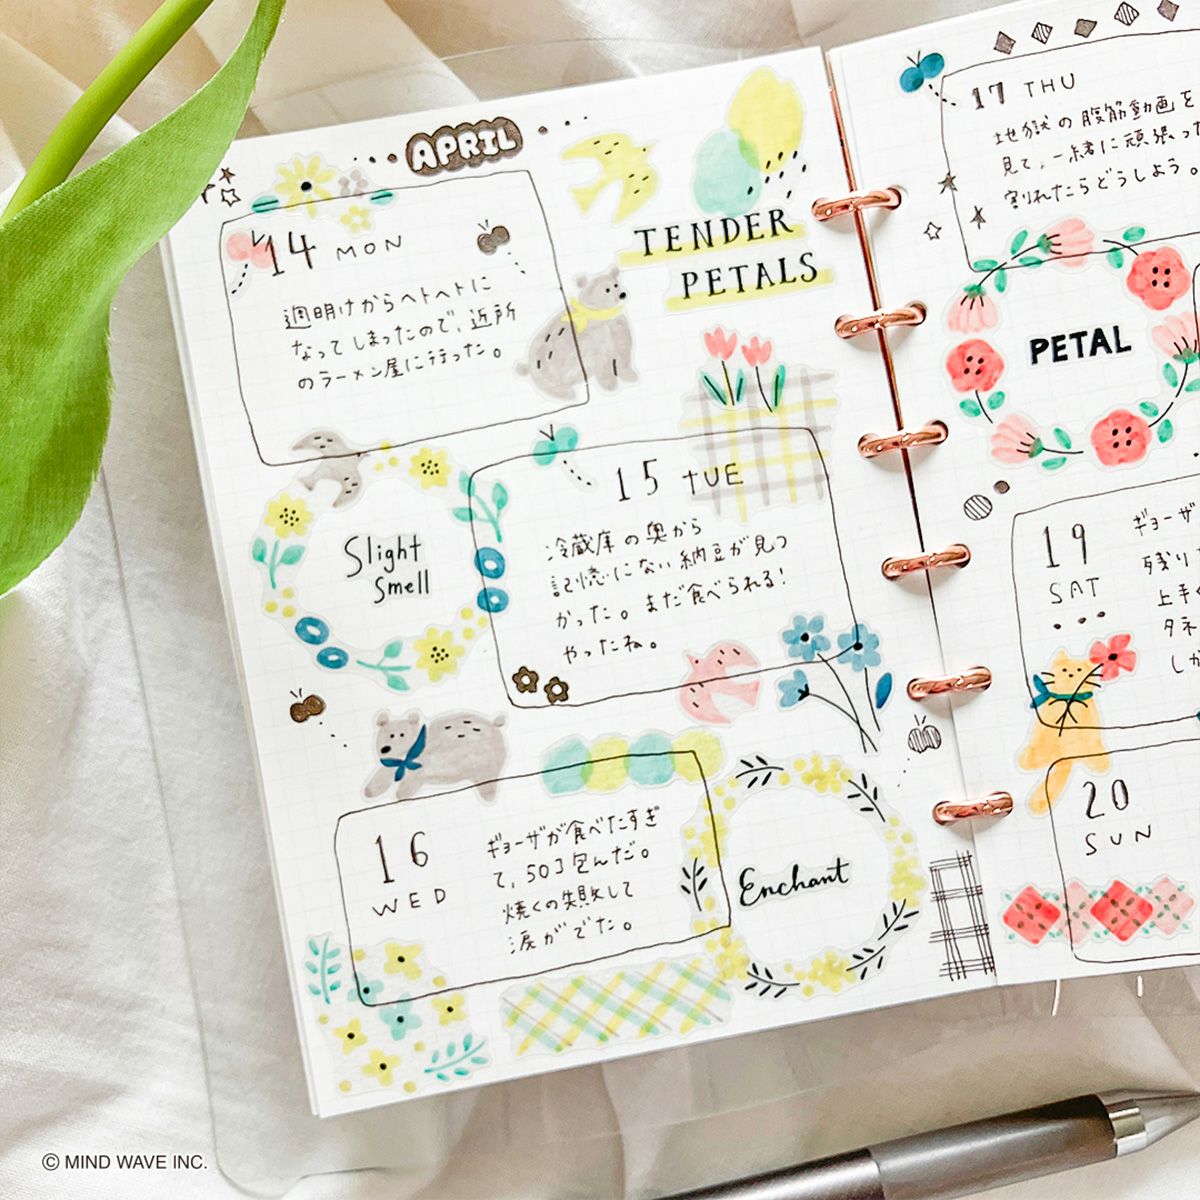 APRIL
14 MON
週明けからヘトヘトに
なってしまったので、近所
のラーメン屋に行った。
TENDER
PETALS
Slight
smell
15 TUE
冷蔵庫の奥から
記憶にない納豆が見つ
かった。まだ食べられる!
やったね。
16
WED
ギョーザが食べたすぎ
て、50コ包んだ。
焼くの失敗して
涙がでた。
Enchant
17 THU
地獄の腹筋動画を
見て、一緒に頑張った
割れたらどうしよう。
PETAL
19
SAT
ギョーザ
残り
上手
タネ
しか
20
SUN
© MIND WAVE INC.